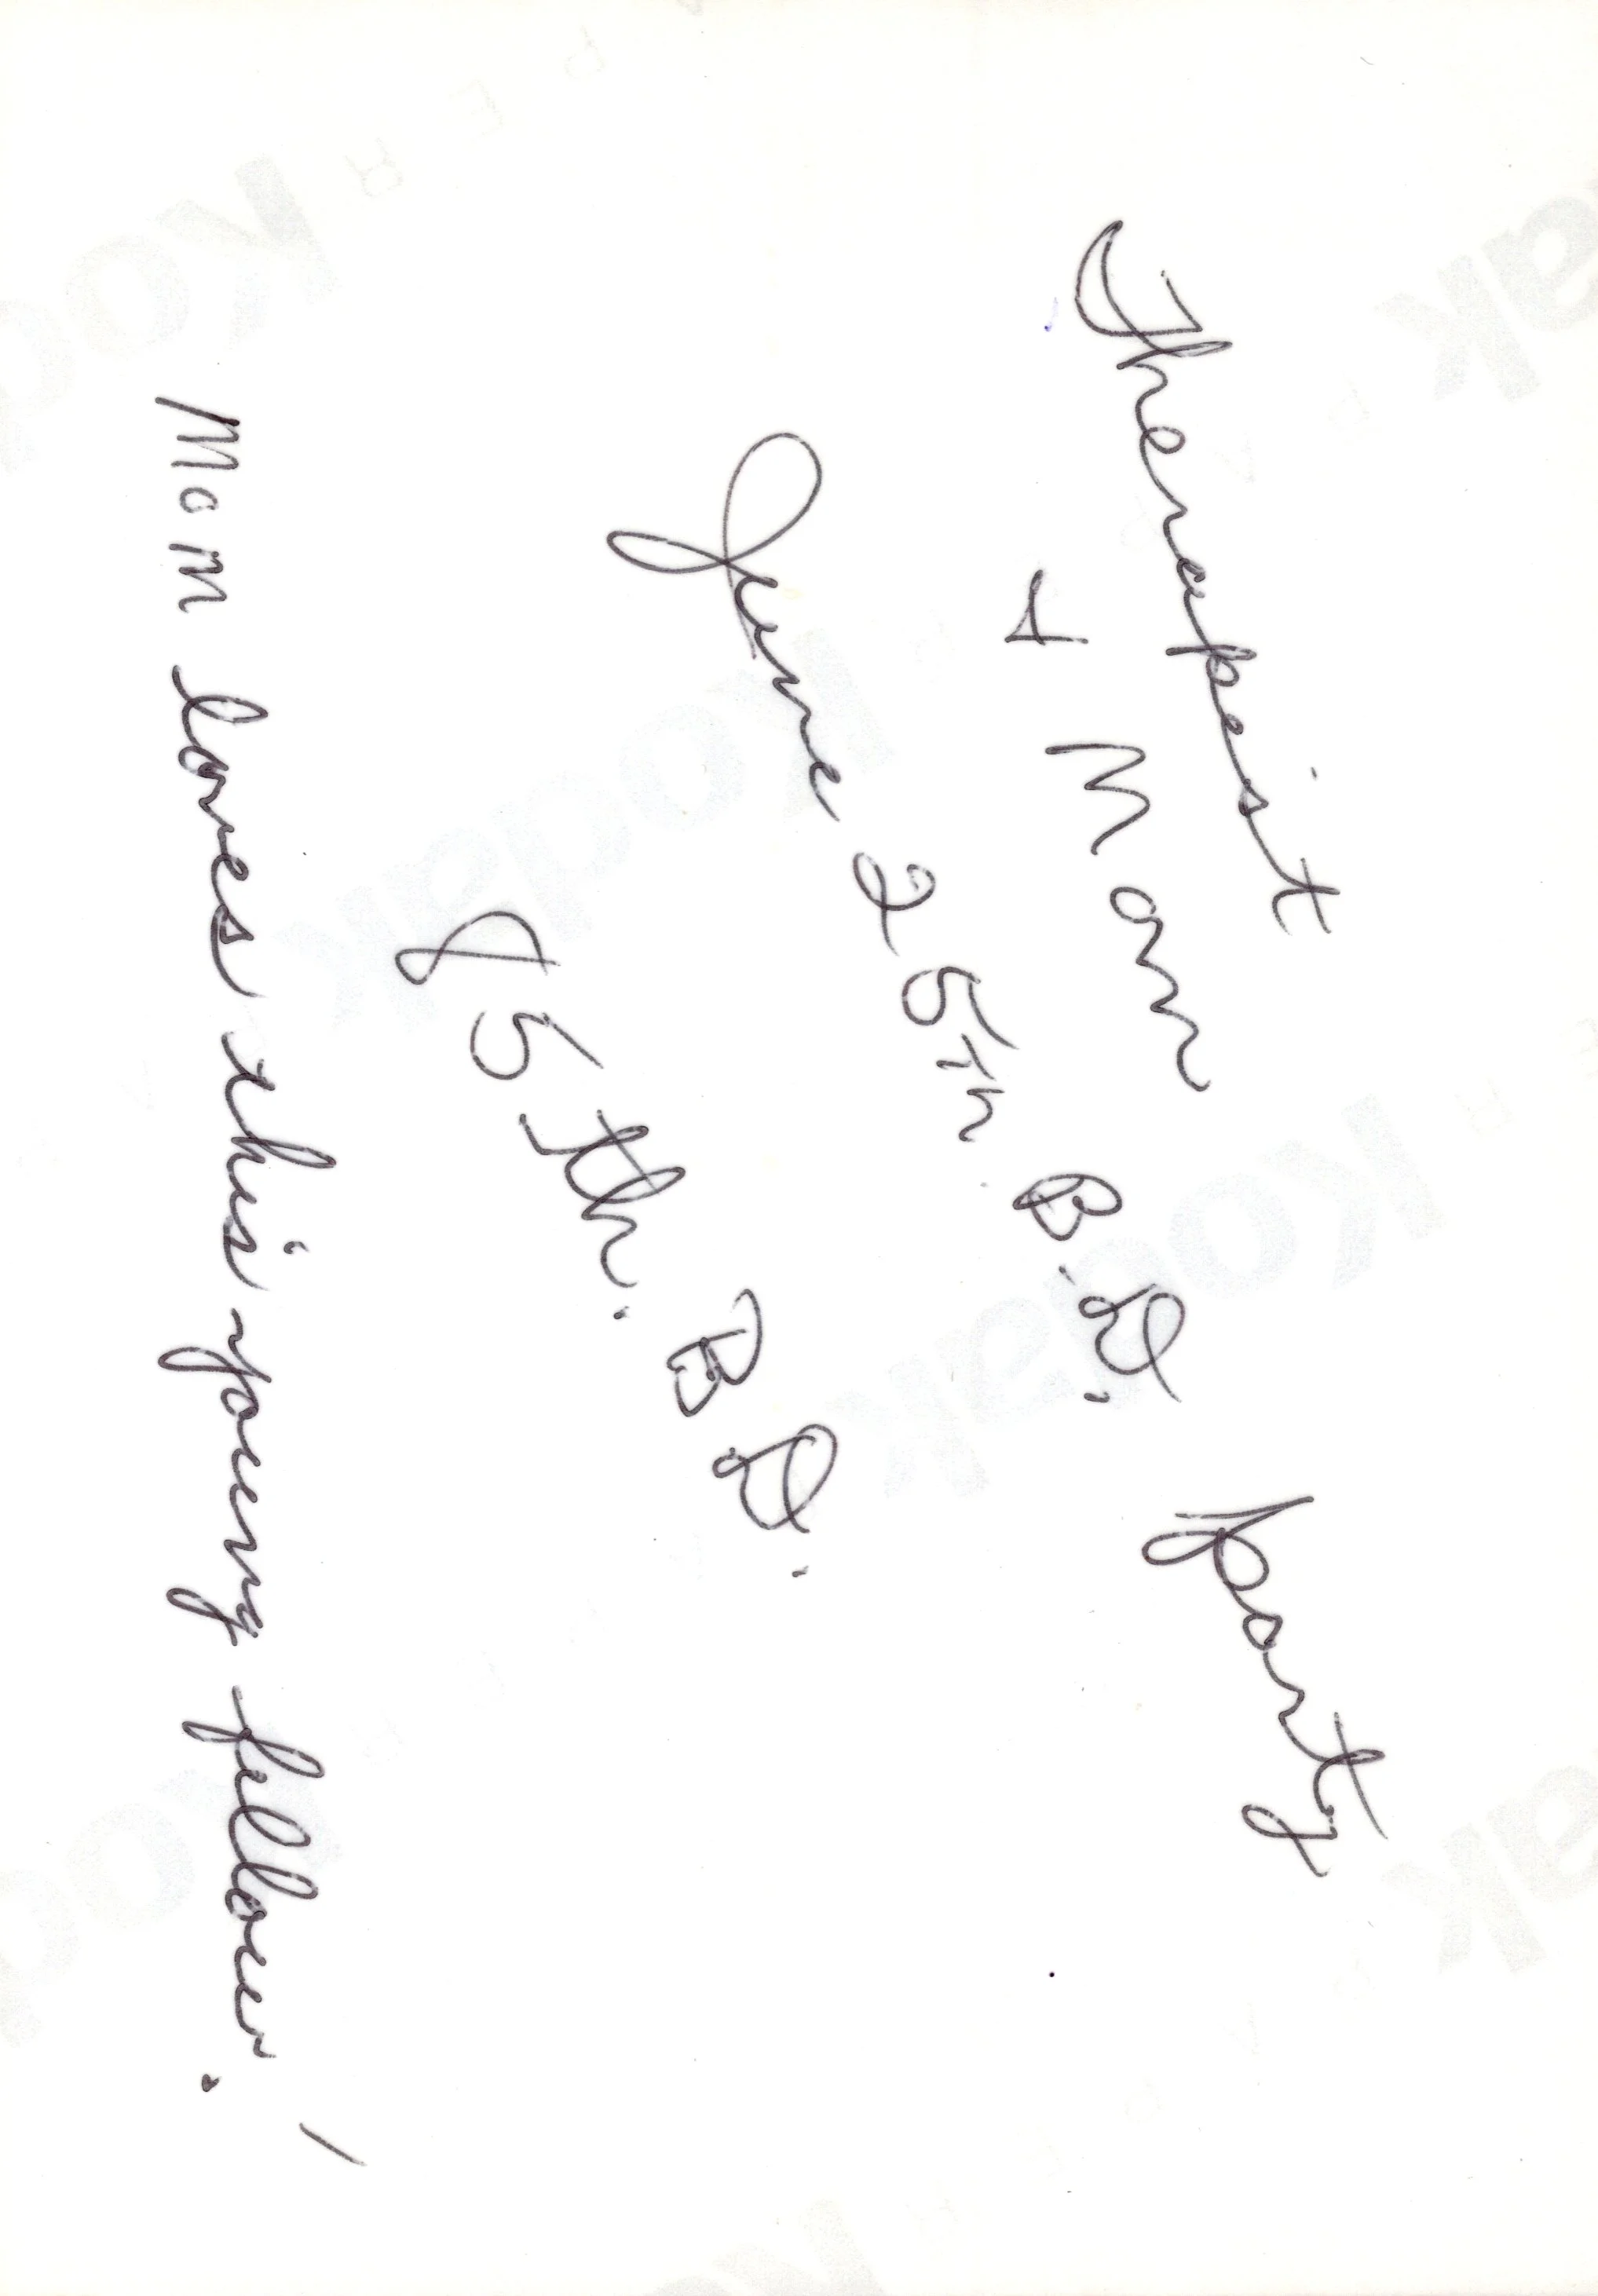 Therapist
& Mom
June 25th B.D. party
85th. B D.
Mom loves this young fellow.